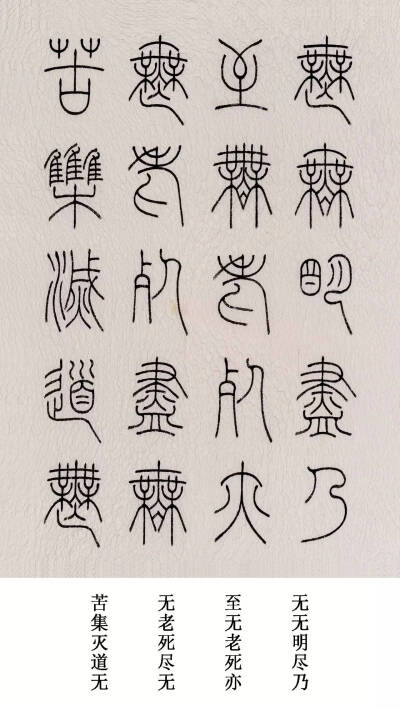 無無明盡乃
至無老死亦
無老死盡無
苦集滅道無
无无明尽乃
至无老死亦
无老死尽无
苦集灭道无